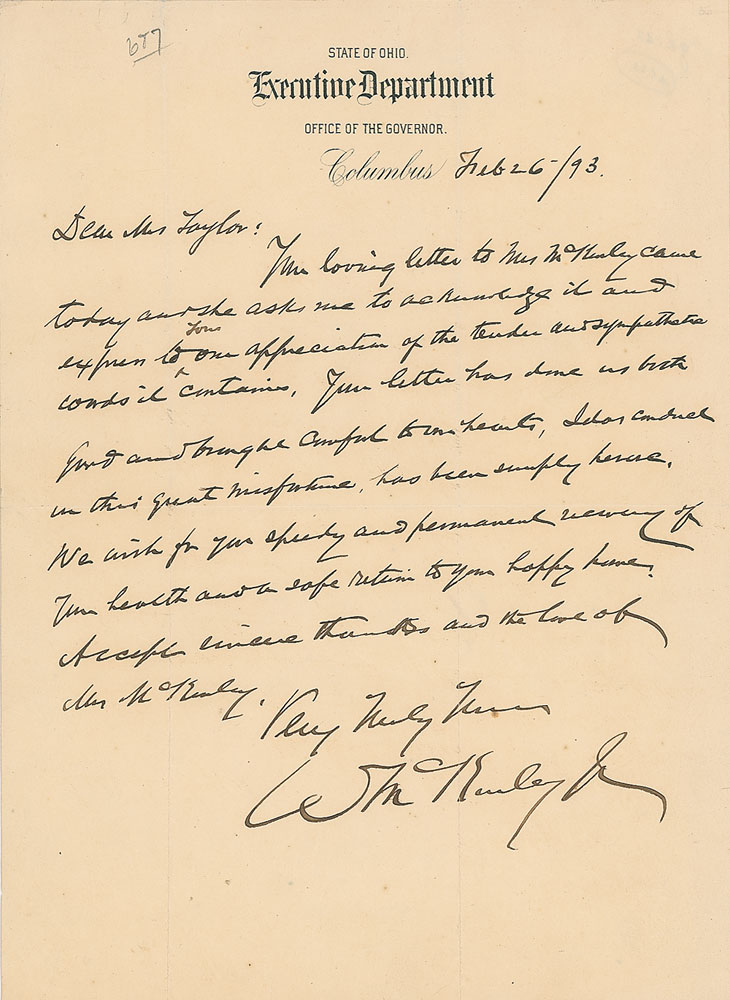 687
STATE OF OHIO.
Executive Department
OFFICE OF THE GOVERNOR.
Columbus Feb 26/93.
Dear Mrs Taylor:
Your loving letter to Mrs McKinley came
today and she asks me to acknowledge it and
you
express to our appreciation of the tender and sympathetic
words it contains. Your letter has done us both
good and brought comfort to our hearts, Ida's conduct
in this great misfortune, has been simply heroic.
We wish for you speedy and permanent recovery of
your health and a safe return to your happy home.
Accept sincere thanks and the love of
Mrs McKinley.
Very Truly Yours
W McKinley Jr